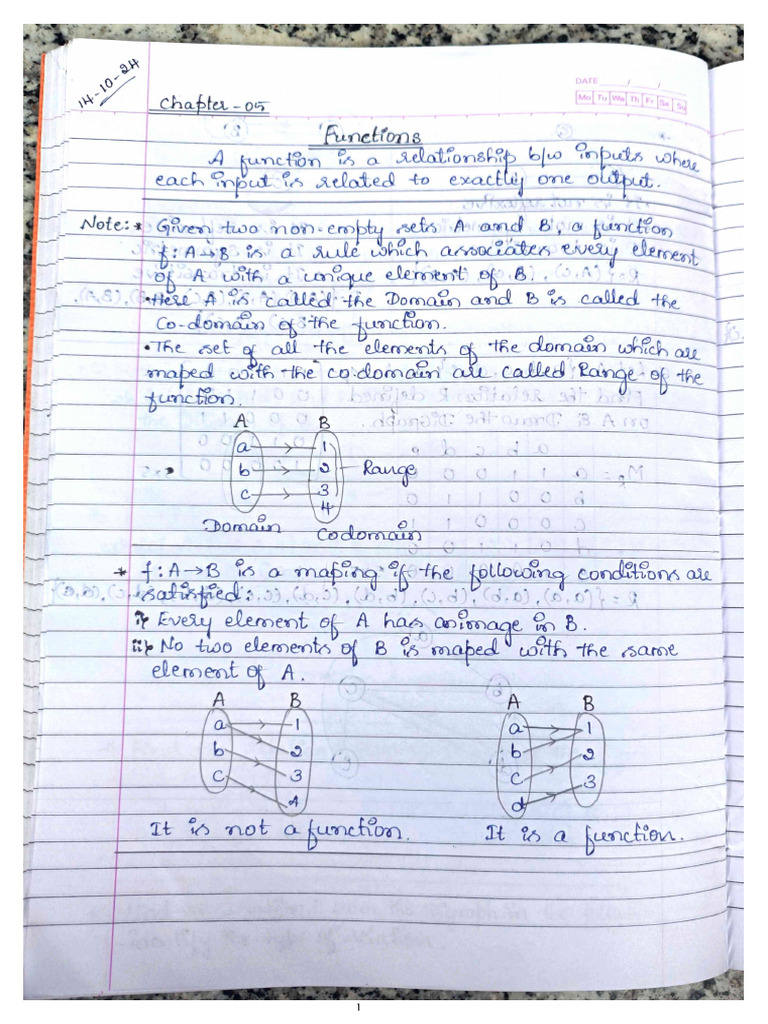 14-10-24
DATE / /
Mo Tu We Th Fr Sa Su
Chapter-05
Functions
A function is a relationship b/w inputs where
each input is related to exactly one output.
Note:* Given two non-empty sets A and B, a function
f:A→B is a rule which associates every element
of A with a unique element of B.
•Here A is called the Domain and B is called the
Co-domain of the function.
•The set of all the elements of the domain which are
maped with the co.domain are called Range of the
function.
A B
a 1
b 2 Range
c 3
4
Domain Codomain
* f:A→B is a maping if the following conditions are
satisfied:
i) Every element of A has an image in B.
ii) No two elements of B is maped with the same
element of A.
A B A B
a 1 a 1
b 2 b 2
c 3 c 3
4 d
It is not a function. It is a function.
1